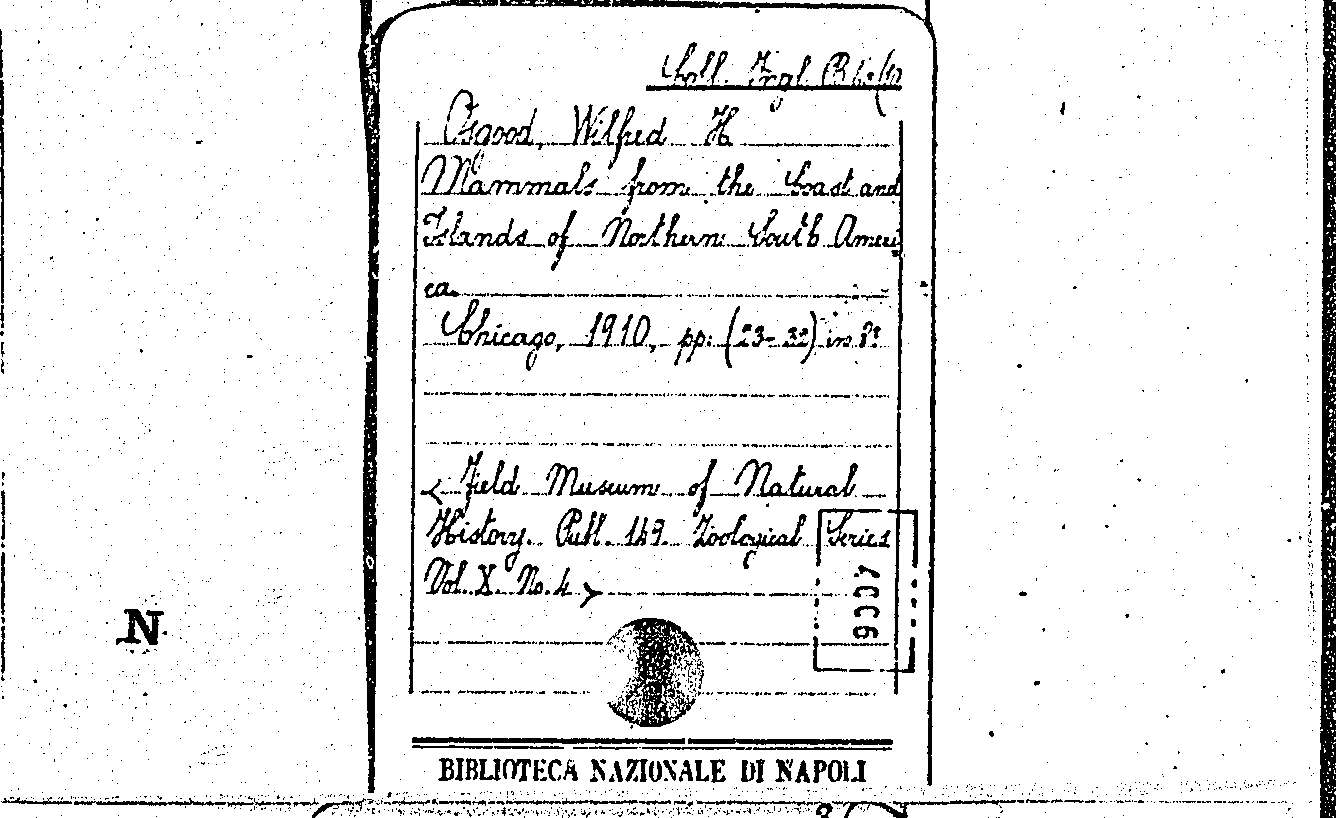 Coll. Ingl. B
Osgood, Wilfred H
Mammals from the Coast and
Islands of Northern South Ameri
ca.
Chicago, 1910, pp. (23-32) in 8°
< Field Museum of Natural
History. Publ. 149. Zoological Series
Vol. X. No. 4 >
N
BIBLIOTECA NAZIONALE DI NAPOLI